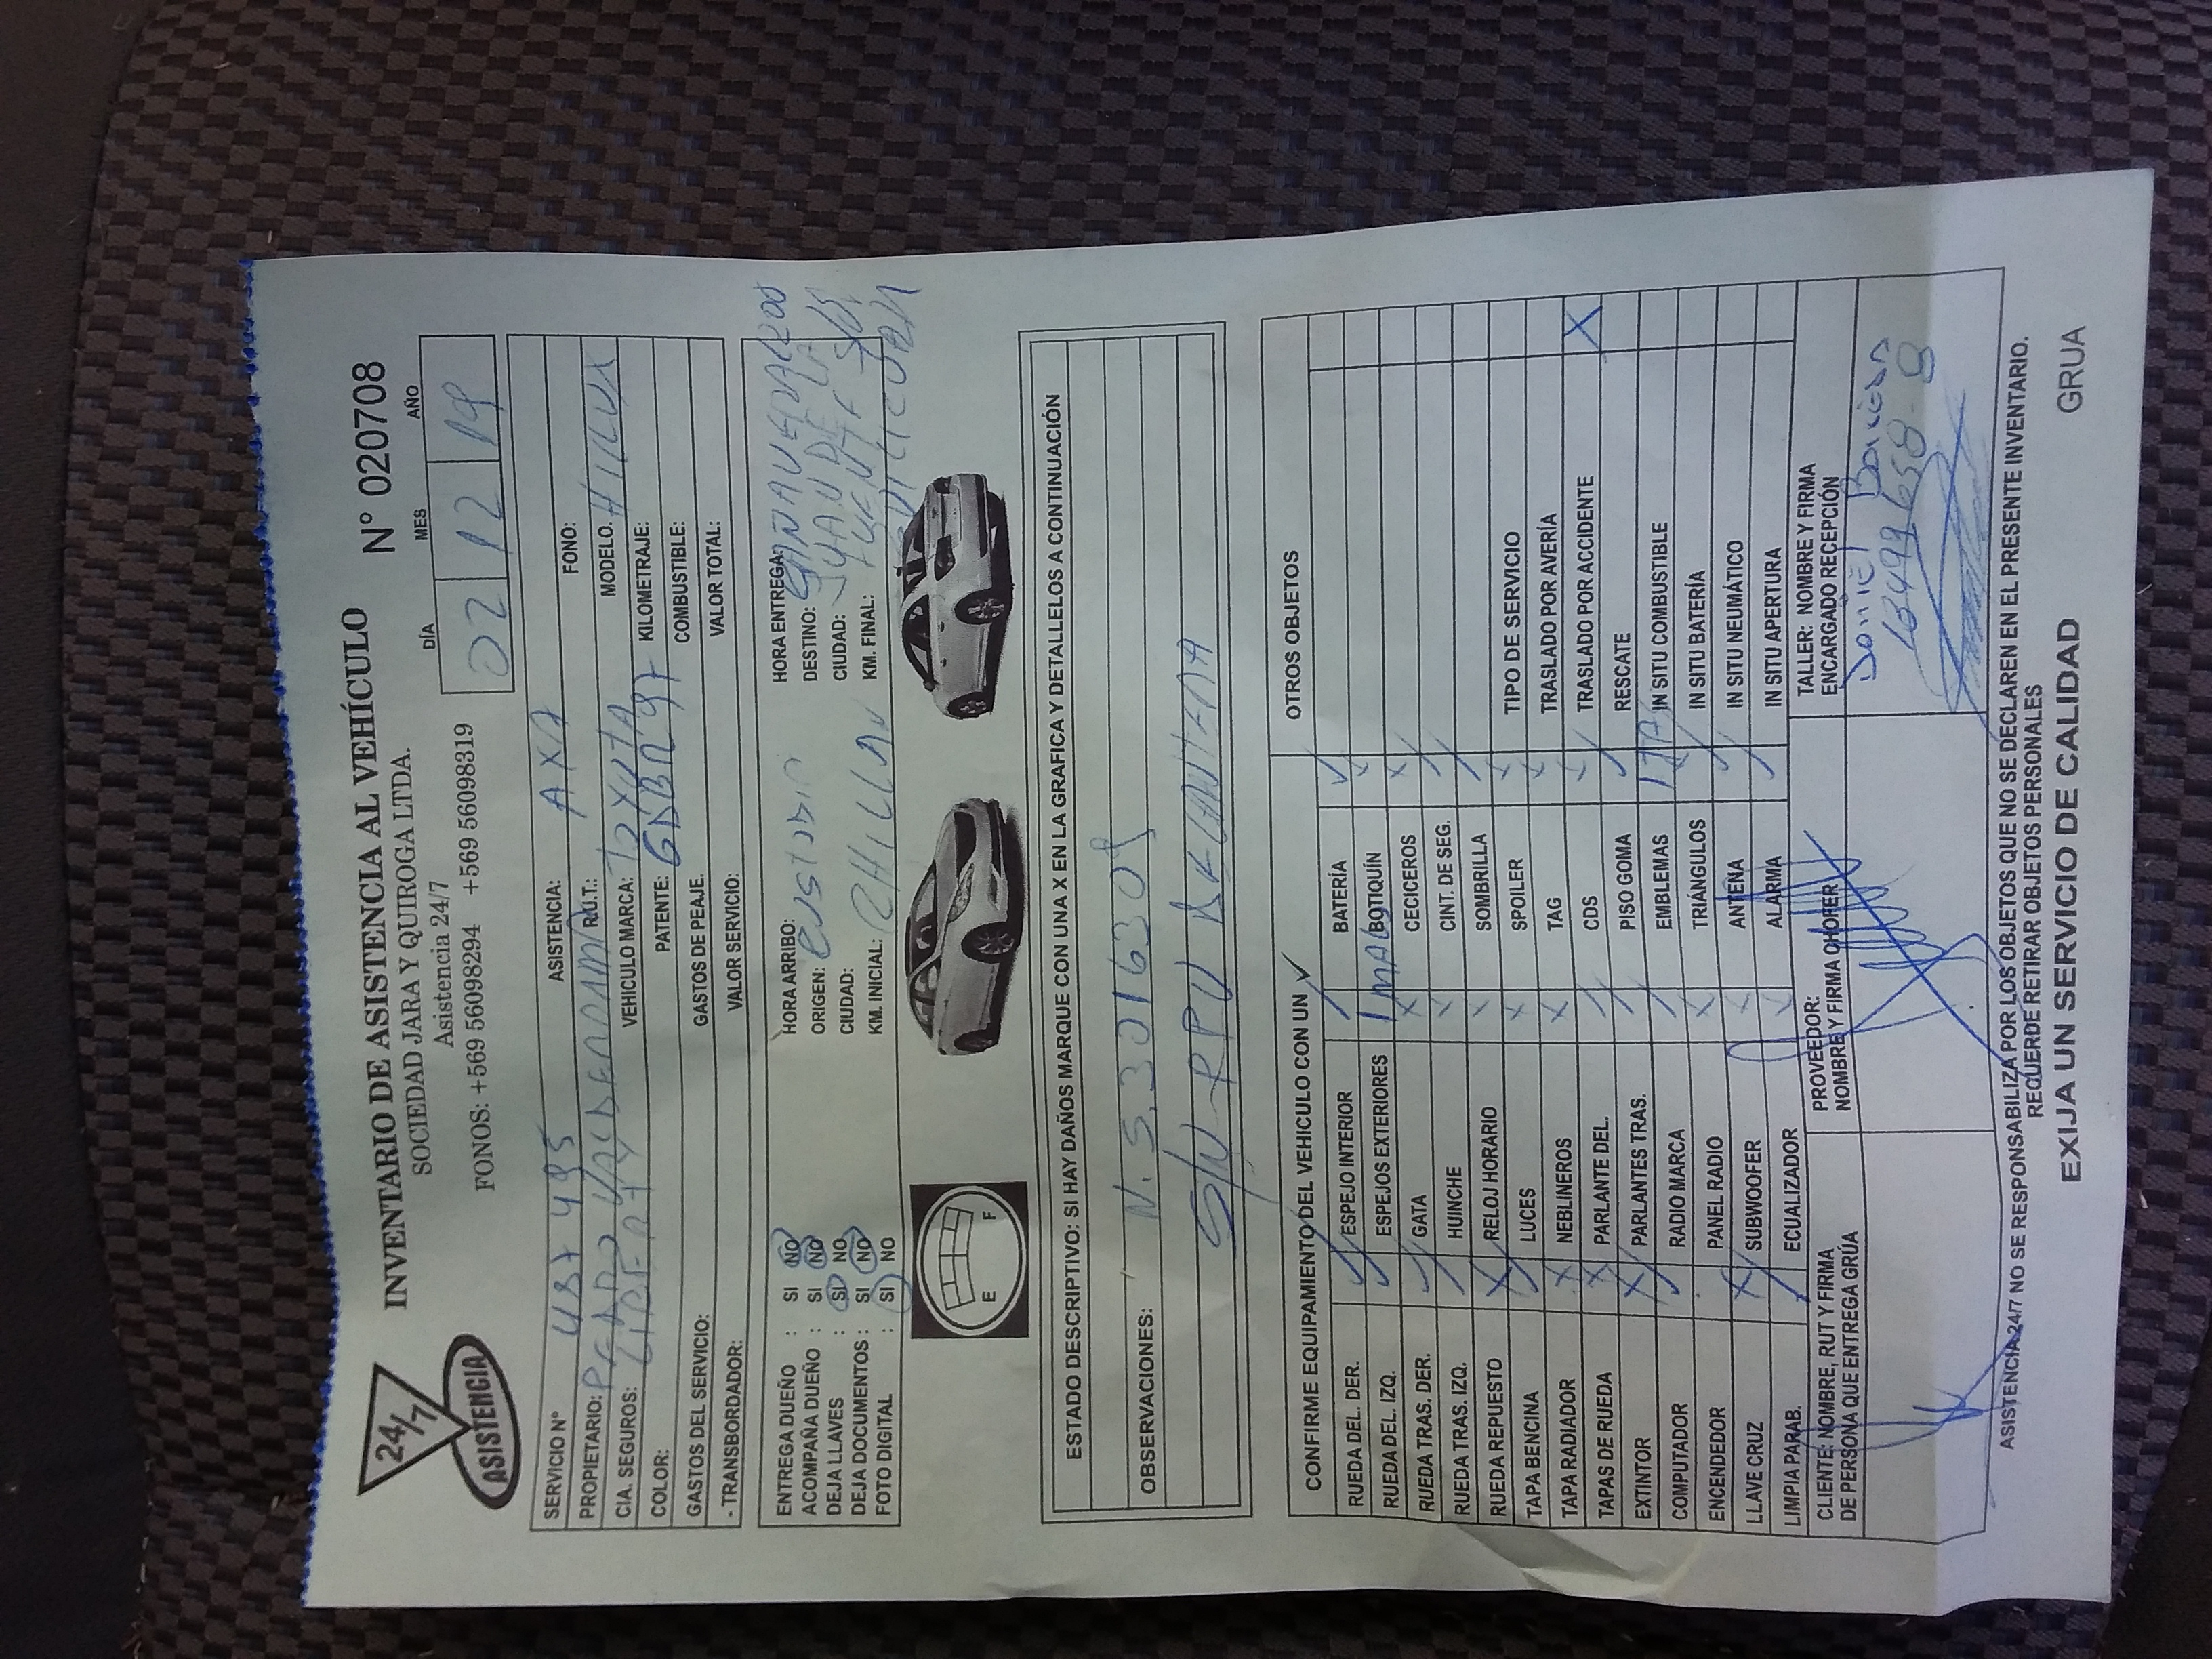 24/7
ASISTENCIA
INVENTARIO DE ASISTENCIA AL VEHÍCULO
N° 020708
SOCIEDAD JARA Y QUIROGA LTDA.
Asistencia 24/7
FONOS: +569 56098294 +569 56098319
DÍA MES AÑO
02 12 19
SERVICIO N° ASISTENCIA: AXA FONO:
PROPIETARIO: PEDRO R.U.T.: MODELO. HILUX
CIA. SEGUROS: VEHICULO MARCA: KILOMETRAJE:
COLOR: PATENTE: COMBUSTIBLE:
GASTOS DEL SERVICIO: GASTOS DE PEAJE. VALOR TOTAL:
- TRANSBORDADOR: VALOR SERVICIO:
ENTREGA DUEÑO : SI NO HORA ARRIBO: HORA ENTREGA:
ACOMPAÑA DUEÑO : SI NO ORIGEN: DESTINO:
DEJA LLAVES : SI NO CIUDAD: CIUDAD:
DEJA DOCUMENTOS : SI NO KM. INICIAL: CHILLAN KM. FINAL:
FOTO DIGITAL : SI NO
E F
ESTADO DESCRIPTIVO: SI HAY DAÑOS MARQUE CON UNA X EN LA GRAFICA Y DETALLELOS A CONTINUACIÓN
OBSERVACIONES: N. 5.3016309
CONFIRME EQUIPAMIENTO DEL VEHICULO CON UN ✓ OTROS OBJETOS
RUEDA DEL. DER. ✓ ESPEJO INTERIOR ✓ BATERÍA ✓
RUEDA DEL. IZQ. ✓ ESPEJOS EXTERIORES 1 MALO BOTIQUÍN x
RUEDA TRAS. DER. ✓ GATA x CECICEROS x
RUEDA TRAS. IZQ. ✓ HUINCHE x CINT. DE SEG. ✓
RUEDA REPUESTO X RELOJ HORARIO x SOMBRILLA ✓
TAPA BENCINA ✓ LUCES x SPOILER x TIPO DE SERVICIO
TAPA RADIADOR x NEBLINEROS x TAG x TRASLADO POR AVERÍA
TAPAS DE RUEDA x PARLANTE DEL. ✓ CDS x TRASLADO POR ACCIDENTE X
EXTINTOR X PARLANTES TRAS. ✓ PISO GOMA ✓ RESCATE
COMPUTADOR ✓ RADIO MARCA x EMBLEMAS IN SITU COMBUSTIBLE
ENCENDEDOR PANEL RADIO x TRIÁNGULOS ✓ IN SITU BATERÍA
LLAVE CRUZ X SUBWOOFER x ANTENA ✓ IN SITU NEUMÁTICO
LIMPIA PARAB. ✓ ECUALIZADOR x ALARMA IN SITU APERTURA
CLIENTE: NOMBRE, RUT Y FIRMA PROVEEDOR: TALLER: NOMBRE Y FIRMA
DE PERSONA QUE ENTREGA GRÚA NOMBRE Y FIRMA CHOFER ENCARGADO RECEPCIÓN
Daniel
ASISTENCIA 24/7 NO SE RESPONSABILIZA POR LOS OBJETOS QUE NO SE DECLAREN EN EL PRESENTE INVENTARIO.
REQUERDE RETIRAR OBJETOS PERSONALES
EXIJA UN SERVICIO DE CALIDAD GRUA